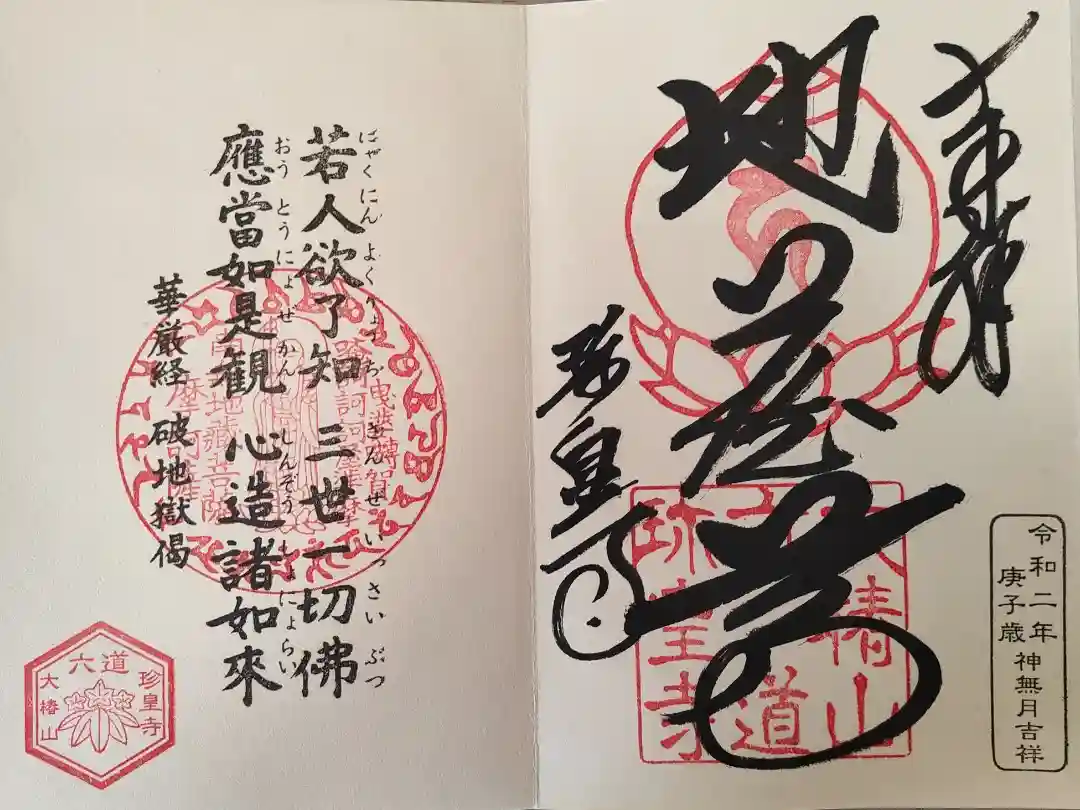 奉拝
地蔵尊
珍皇寺
大椿山
六道
珍皇寺
令和二年
庚子歳
神無月吉祥
にゃくにん よくりょうち さんぜいっさい ぶつ
若人欲了知 三世一切佛
おうとうにょ ぜかん しんぞう しょにょらい
應當如是觀 心造諸如來
華厳経 破地獄偈
地藏菩薩
六道
珍皇寺
大椿山